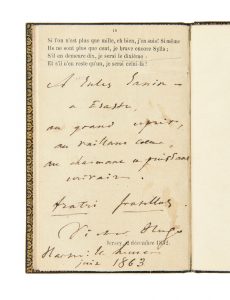 Si l'on n'est plus que mille, eh bien, j'en suis! Si même
Ils ne sont plus que cent, je brave encore Sylla;
S'il en demeure dix, je serai le dixième;
Et s'il n'en reste qu'un, je serai celui-là!
A Jules Janin —
au grand esprit,
au vaillant cœur,
au charmant et puissant
écrivain.
Victor Hugo
Jersey, 2 décembre 1852.
juin 1863